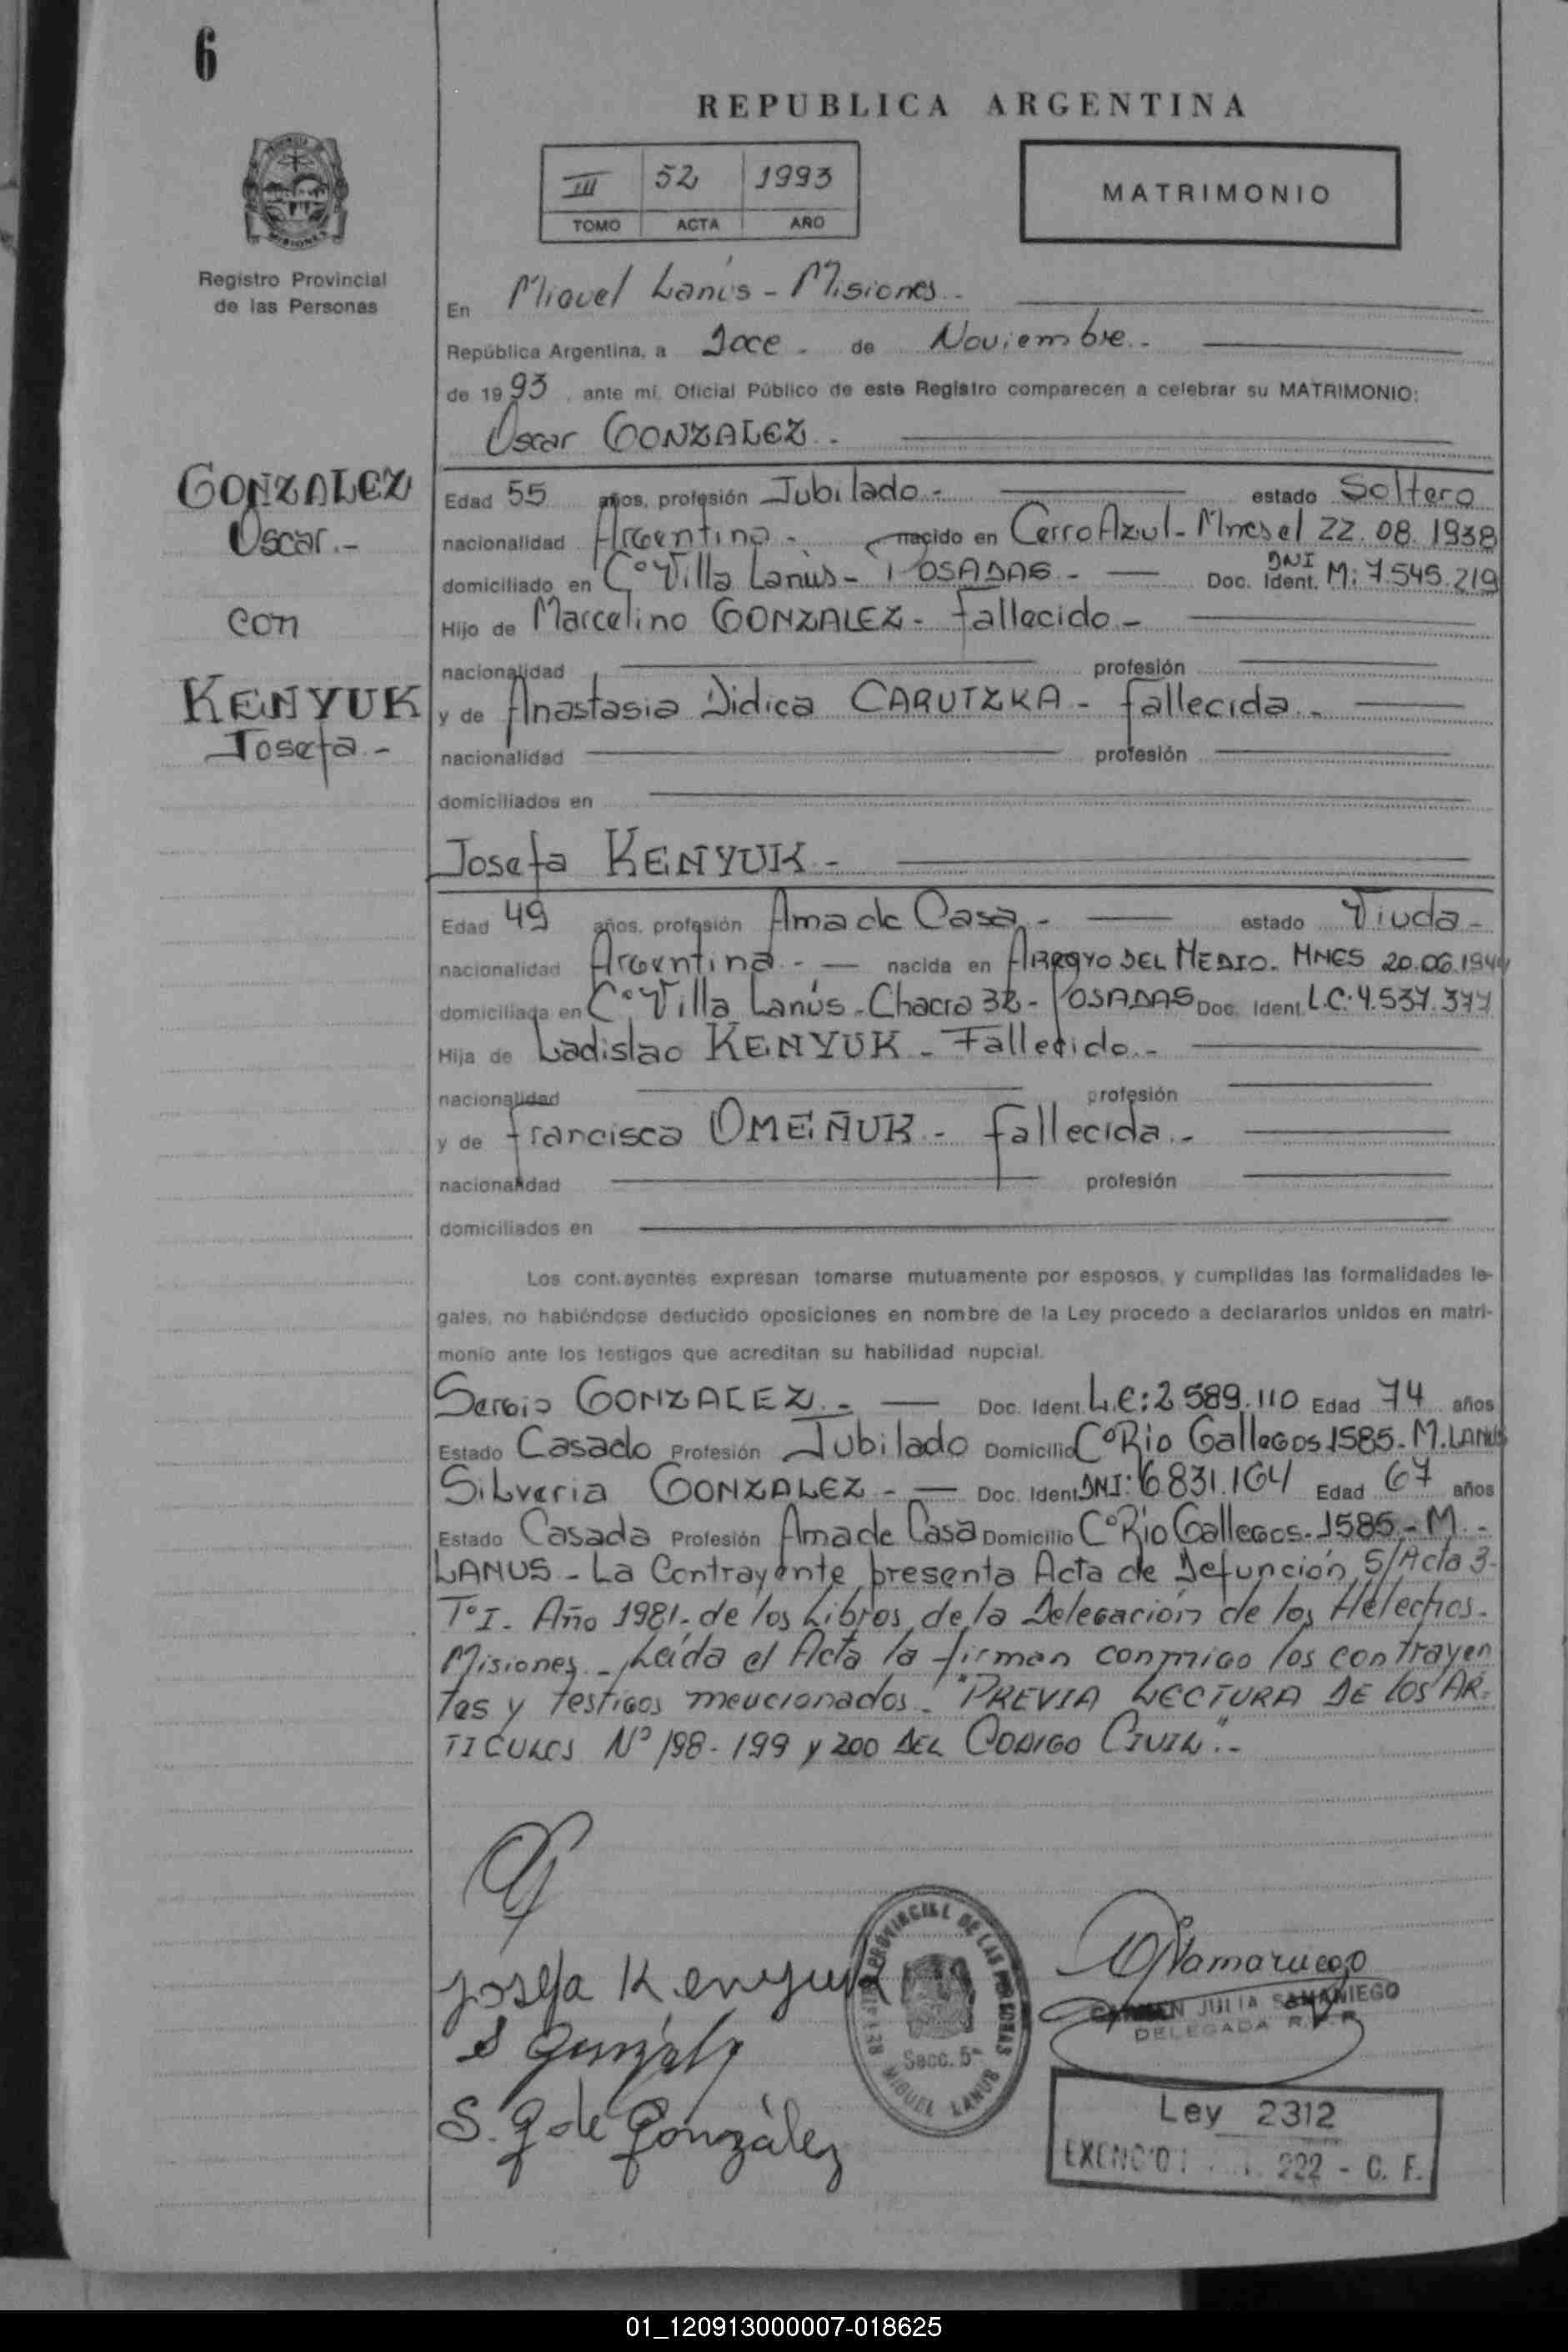 6
REPUBLICA ARGENTINA
III 52 1993
TOMO ACTA AÑO
MATRIMONIO
Registro Provincial
de las Personas
En Miguel Lanús - Misiones -
República Argentina, a Doce - de Noviembre -
de 1993, ante mí, Oficial Público de este Registro comparecen a celebrar su MATRIMONIO:
Oscar GONZALEZ -
GONZALEZ
Oscar.-
con
KENYUK
Josefa -
Edad 55 años, profesión Jubilado - estado Soltero
nacionalidad Argentina - nacido en Cerro Azul - Mnes el 22.08.1938
domiciliado en Cº Villa Lanús - POSADAS - Doc. Ident. DNI M: 7.545.219
Hijo de Marcelino GONZALEZ - fallecido -
nacionalidad profesión
y de Anastasia Didica CARUTZKA - fallecida -
nacionalidad profesión
domiciliados en
Josefa KENYUK -
Edad 49 años, profesión Ama de Casa - estado Viuda -
nacionalidad Argentina - nacida en ARROYO DEL MEDIO - MNES 20.06.1944
domiciliada en Cº Villa Lanús - Chacra 32 - POSADAS Doc. Ident. L.C: 4.537.377
Hija de Ladislao KENYUK - Fallecido -
nacionalidad profesión
y de francisca OMEÑUK - fallecida -
nacionalidad profesión
domiciliados en
Los contrayentes expresan tomarse mutuamente por esposos, y cumplidas las formalidades le-
gales, no habiéndose deducido oposiciones en nombre de la Ley procedo a declararlos unidos en matri-
monio ante los testigos que acreditan su habilidad nupcial.
Sergio GONZALEZ - Doc. Ident. L.E: 2.589.110 Edad 74 años
Estado Casado Profesión Jubilado Domicilio Cº Rio Gallegos 1585 - M. LANUS
Silveria GONZALEZ - Doc. Ident. DNI: 6.831.164 Edad 67 años
Estado Casada Profesión Ama de Casa Domicilio Cº Rio Gallegos - 1585 - M. -
LANUS - La Contrayente presenta Acta de Defunción S/Acta 3-
Tº I - Año 1981 - de los Libros de la Delegación de los Helechos -
Misiones - Leída el Acta la firman conmigo los contrayen
tes y testigos mencionados - "PREVIA LECTURA DE LOS AR-
TICULOS Nº 198 - 199 y 200 DEL CODIGO CIVIL" -
Josefa Kenyuk
S Gonzalez
S. G de González
REGISTRO PROVINCIAL DE LAS PERSONAS
Secc. 5ª
MIGUEL LANUS
CARMEN JULIA SAMANIEGO
DELEGADA R.P.P
Ley 2312
222 - C. F.
01_120913000007-018625